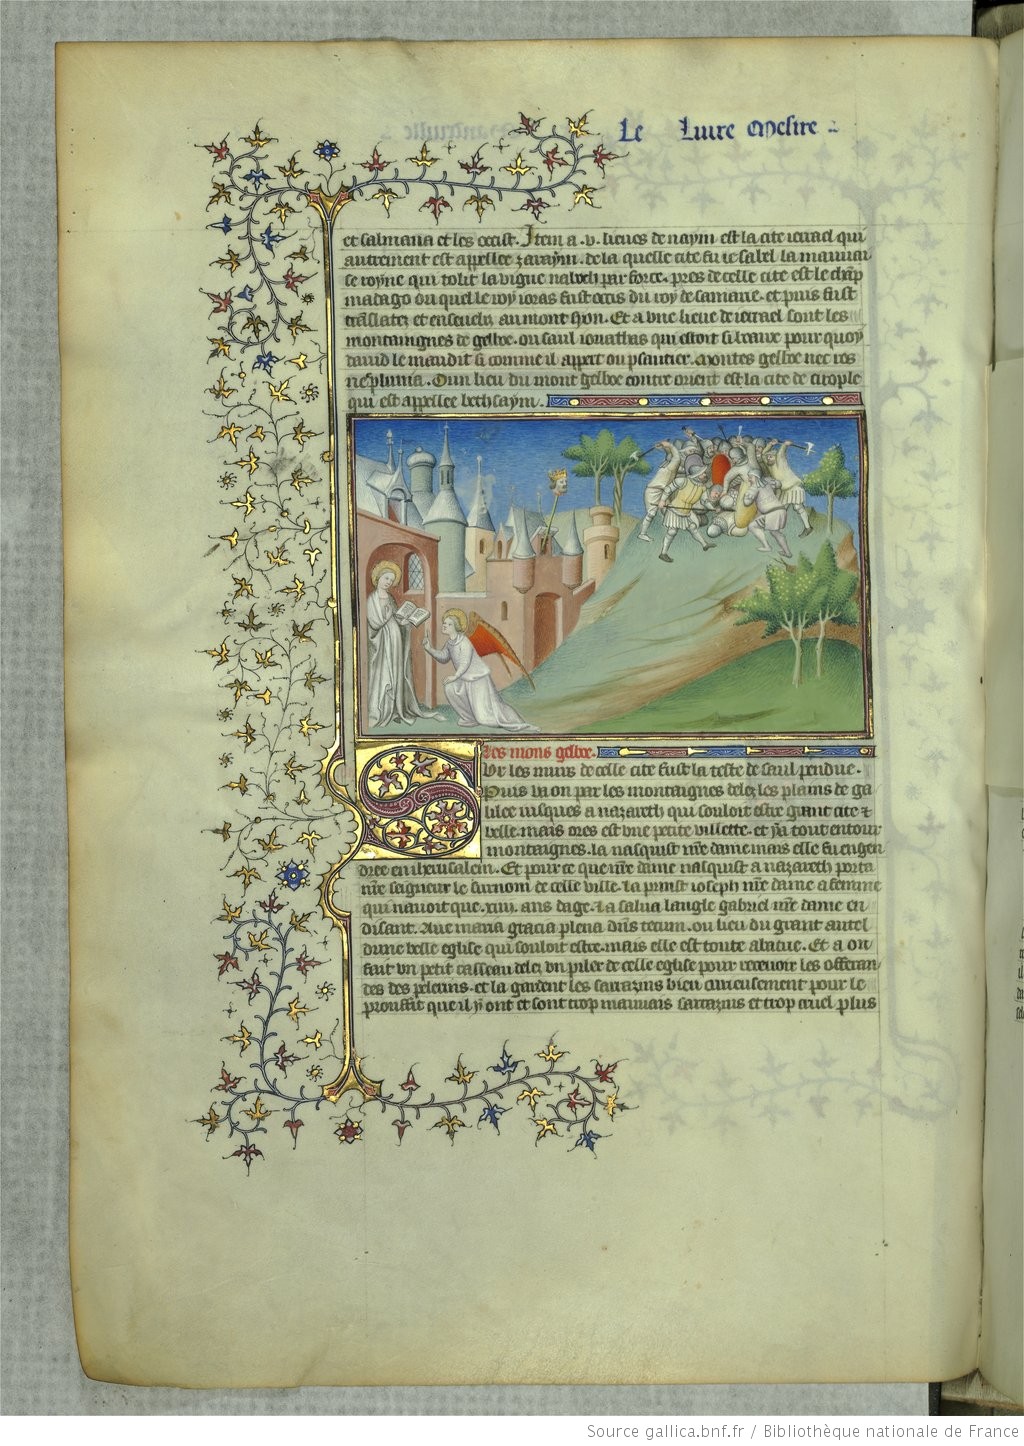 Le Liure Messire
et salmana et les occist. Item a .v. lieues de naym est la cite iezrael qui
autrement est appellee zaraym. de la quelle cite fu iesabel la mauuai
se royne qui tolit la vigne naboth par force. pres de celle cite est le chāp
madago ou quel le roy ioras fust occis du roy de samarie. et puis fust
trāslatez et enseueliz au mont syon. Et a vne lieue de iezrael sont les
montaignes de gelboe. ou saul ionathas qui estoit si beaux pour quoy
dauid le maudit si comme il appert ou psautier. Montes gelboe nec ros
nec pluuia. Oun lieu du mont gelboe contre orient est la cite de citople
qui est appellee bethsaym.
Les mons gelboe.
Sur les murs de celle cite fust la teste de saul pendue.
Puis va on par les montaignes delez les plains de ga
lilee iusques a nazareth qui souloit estre grant cite ⁊
belle. mais ores est vne petite villette. et y a tout entour
montaignes. la nasquist nr̄e dame mais elle fu engen
dree en iherusalem. Et pour ce que nr̄e dame nasquist a nazareth porta
nr̄e seigneur le surnom de celle ville. la prinst ioseph nr̄e dame a femme
qui nauoit que .xiiii. ans dage. La salua langle gabriel nr̄e dame en
disant. Aue maria gracia plena dn̄s tecum. ou lieu du grant autel
dune belle eglise qui souloit estre. mais elle est toute abatue. Et a on
fait vn petit casseau delez vn piler de celle eglise pour receuoir les offeran
des des pelerins. et la gardent les sarrazins bien curieusement pour le
prouffit que il y ont et sont trop mauuais sarrazins et trop cruel plus
Source gallica.bnf.fr / Bibliothèque nationale de France